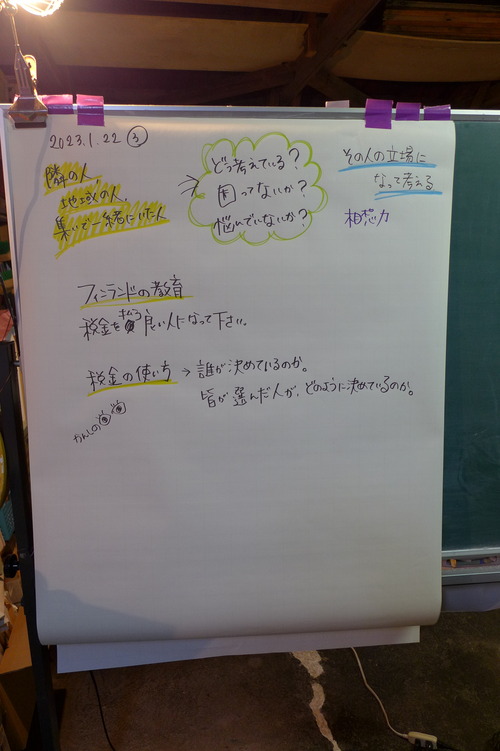 2023.1.22 ③
隣の人、
地域の人、
集いで一緒にいた人
どう考えている?
困ってないか?
悩んでいないか?
その人の立場に
なって考える
相想力
フィンランドの教育
税金を払う良い人になって下さい。
税金の使い方 → 誰が決めているのか。
皆が選んだ人が、どのように決めているのか。
かんしの